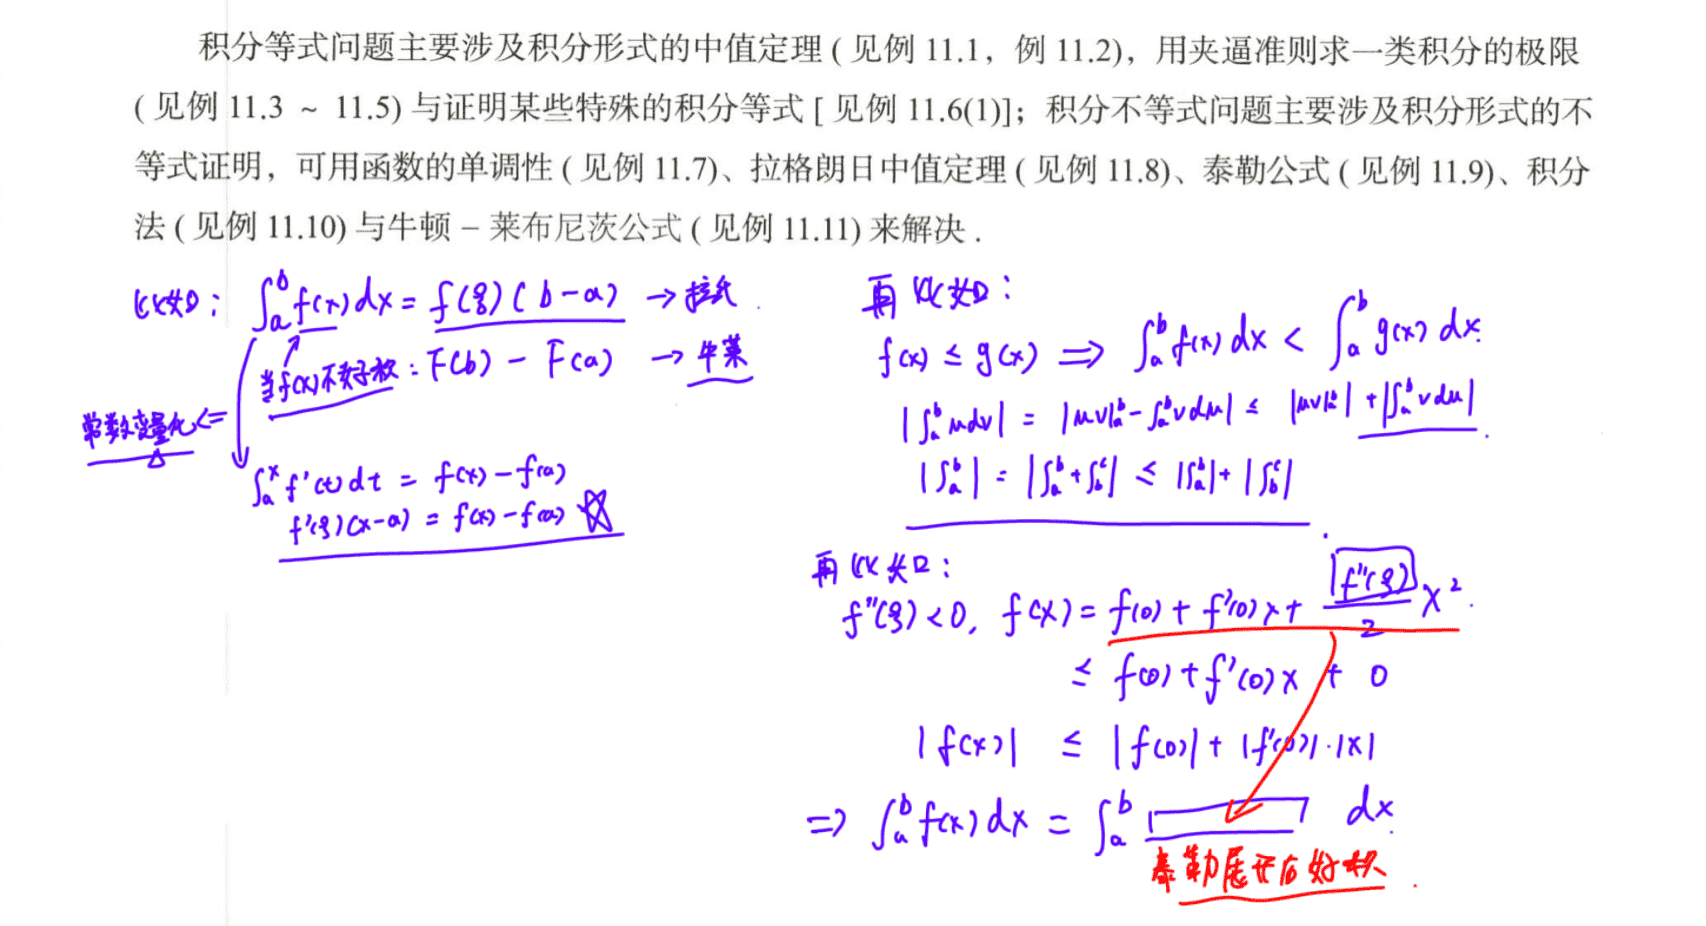 积分等式问题主要涉及积分形式的中值定理(见例 11.1，例 11.2)，用夹逼准则求一类积分的极限
(见例 11.3 ~ 11.5) 与证明某些特殊的积分等式 [见例 11.6(1)]；积分不等式问题主要涉及积分形式的不
等式证明，可用函数的单调性(见例 11.7)、拉格朗日中值定理(见例 11.8)、泰勒公式(见例 11.9)、积分
法(见例 11.10) 与牛顿 – 莱布尼茨公式(见例 11.11) 来解决 .
比如: ∫_a^b f(x) dx = f(ξ)(b-a) → 拉氏.
当f(x)不好放: F(b) - F(a) → 牛莱
常数变量化 <=
∫_a^x f'(t) dt = f(x) - f(a)
f'(ξ)(x-a) = f(x) - f(a) ☆
再比如:
f(x) ≤ g(x) => ∫_a^b f(x) dx < ∫_a^b g(x) dx.
|∫_a^b u dv| = |uv|_a^b - ∫_a^b v du| ≤ |uv|_a^b| + |∫_a^b v du|.
|∫_a^b| = |∫_a^b + ∫_b^c| ≤ |∫_a^b| + |∫_b^c|
再比如:
f''(ξ) < 0, f(x) = f(0) + f'(0)x + f''(ξ)/2 x².
≤ f(0) + f'(0)x + 0
|f(x)| ≤ |f(0)| + |f'(0)|·|x|
=> ∫_a^b f(x) dx = ∫_a^b dx.
泰勒展开后好积.